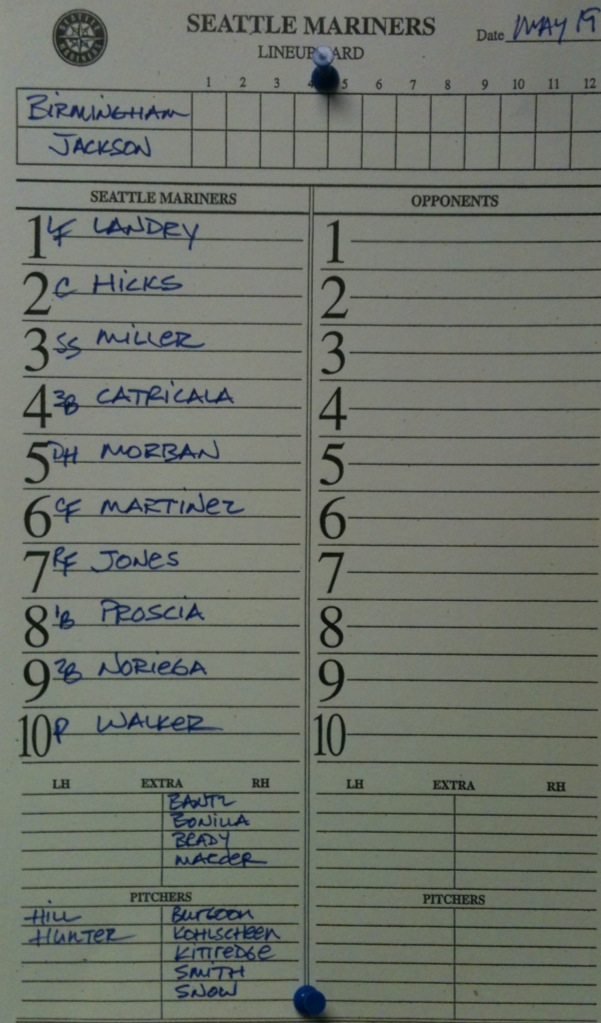 SEATTLE MARINERS
LINEUP CARD
Date MAY 19
1 2 3 4 5 6 7 8 9 10 11 12
BIRMINGHAM
JACKSON
SEATTLE MARINERS OPPONENTS
1 LF LANDRY 1
2 C HICKS 2
3 SS MILLER 3
4 3B CATRICALA 4
5 DH MORBAN 5
6 CF MARTINEZ 6
7 RF JONES 7
8 1B PROSCIA 8
9 2B NORIEGA 9
10 P WALKER 10
LH EXTRA RH LH EXTRA RH
BANTZ
BONILLA
BRADY
MARDER
PITCHERS PITCHERS
HILL BURGOON
HUNTER KOHLSCHEEN
KITTREDGE
SMITH
SNOW